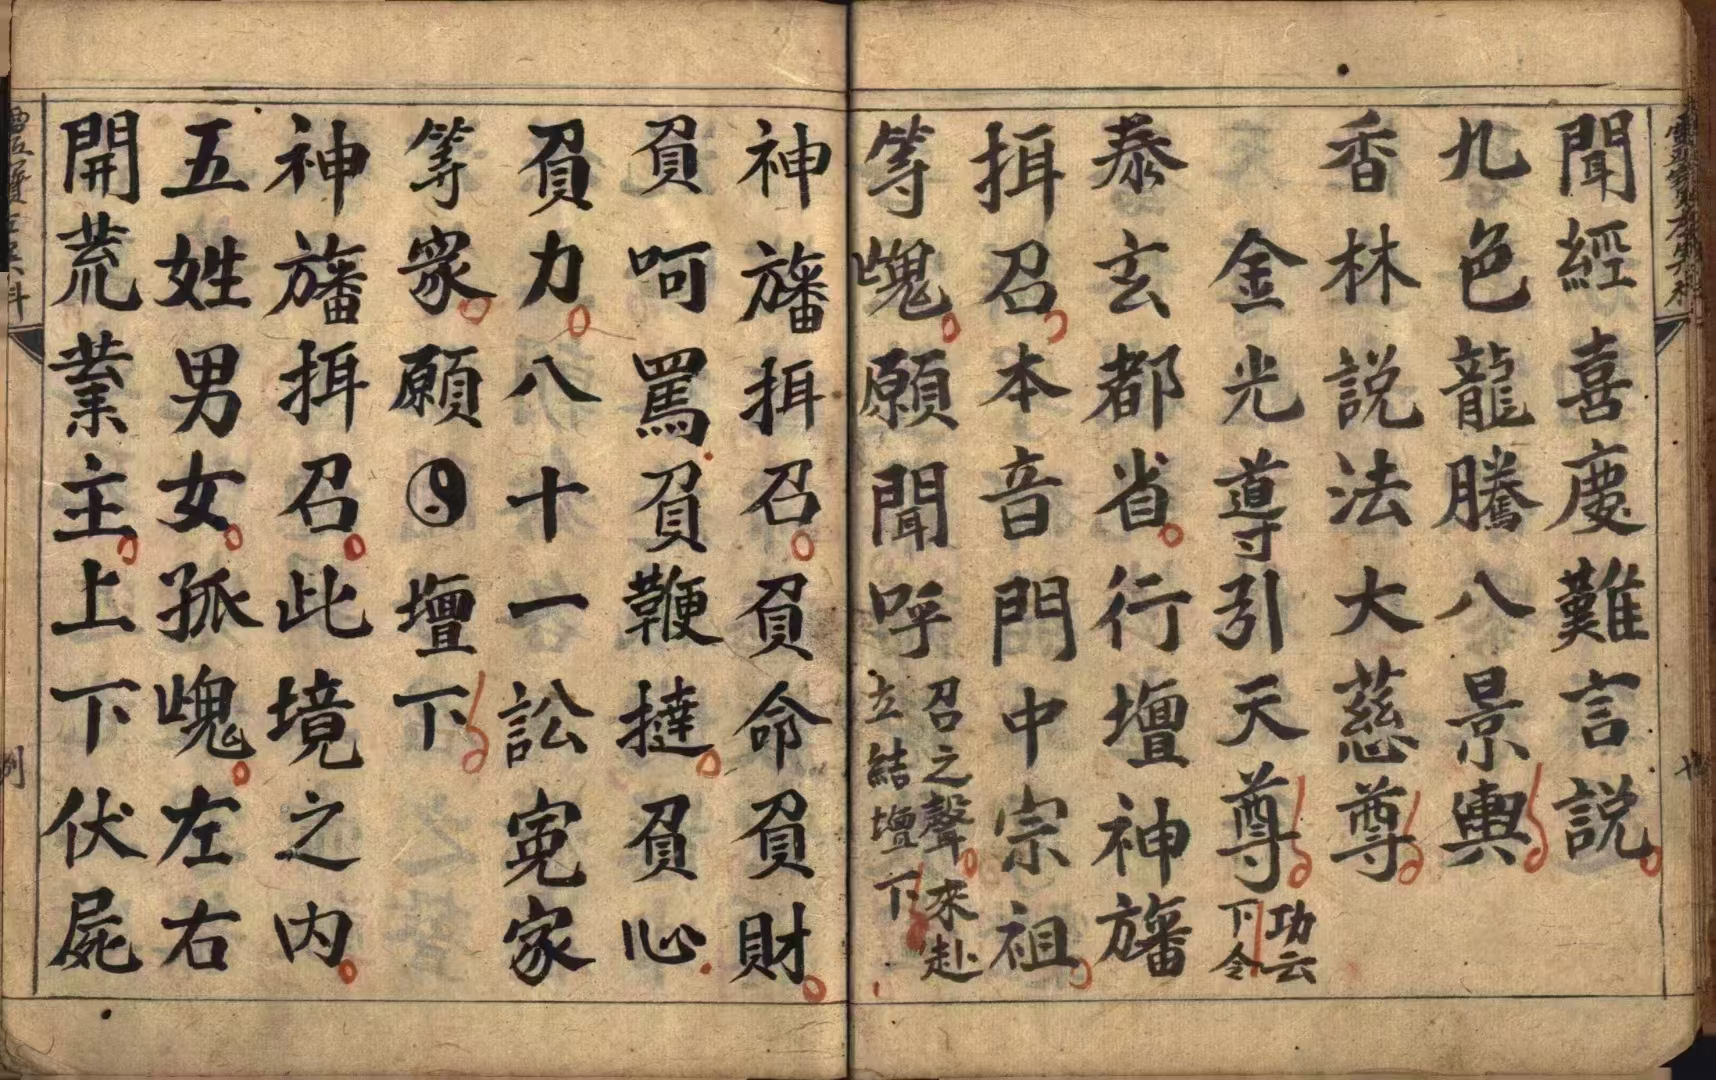 聞經喜慶難言説
九色龍騰八景輿
香林説法大慈尊
金光導引天尊
功云
下令
泰玄都省行壇神旛
挕召本音門中宗祖
等䰟願聞呼
召之聲來赴
立結壇下
神旛挕召負命負財
負呵罵負鞭撻負心
負力八十一訟寃家
等衆願☯壇下
神旛挕召此境之内
五姓男女孤䰟左右
開荒業主上下伏屍